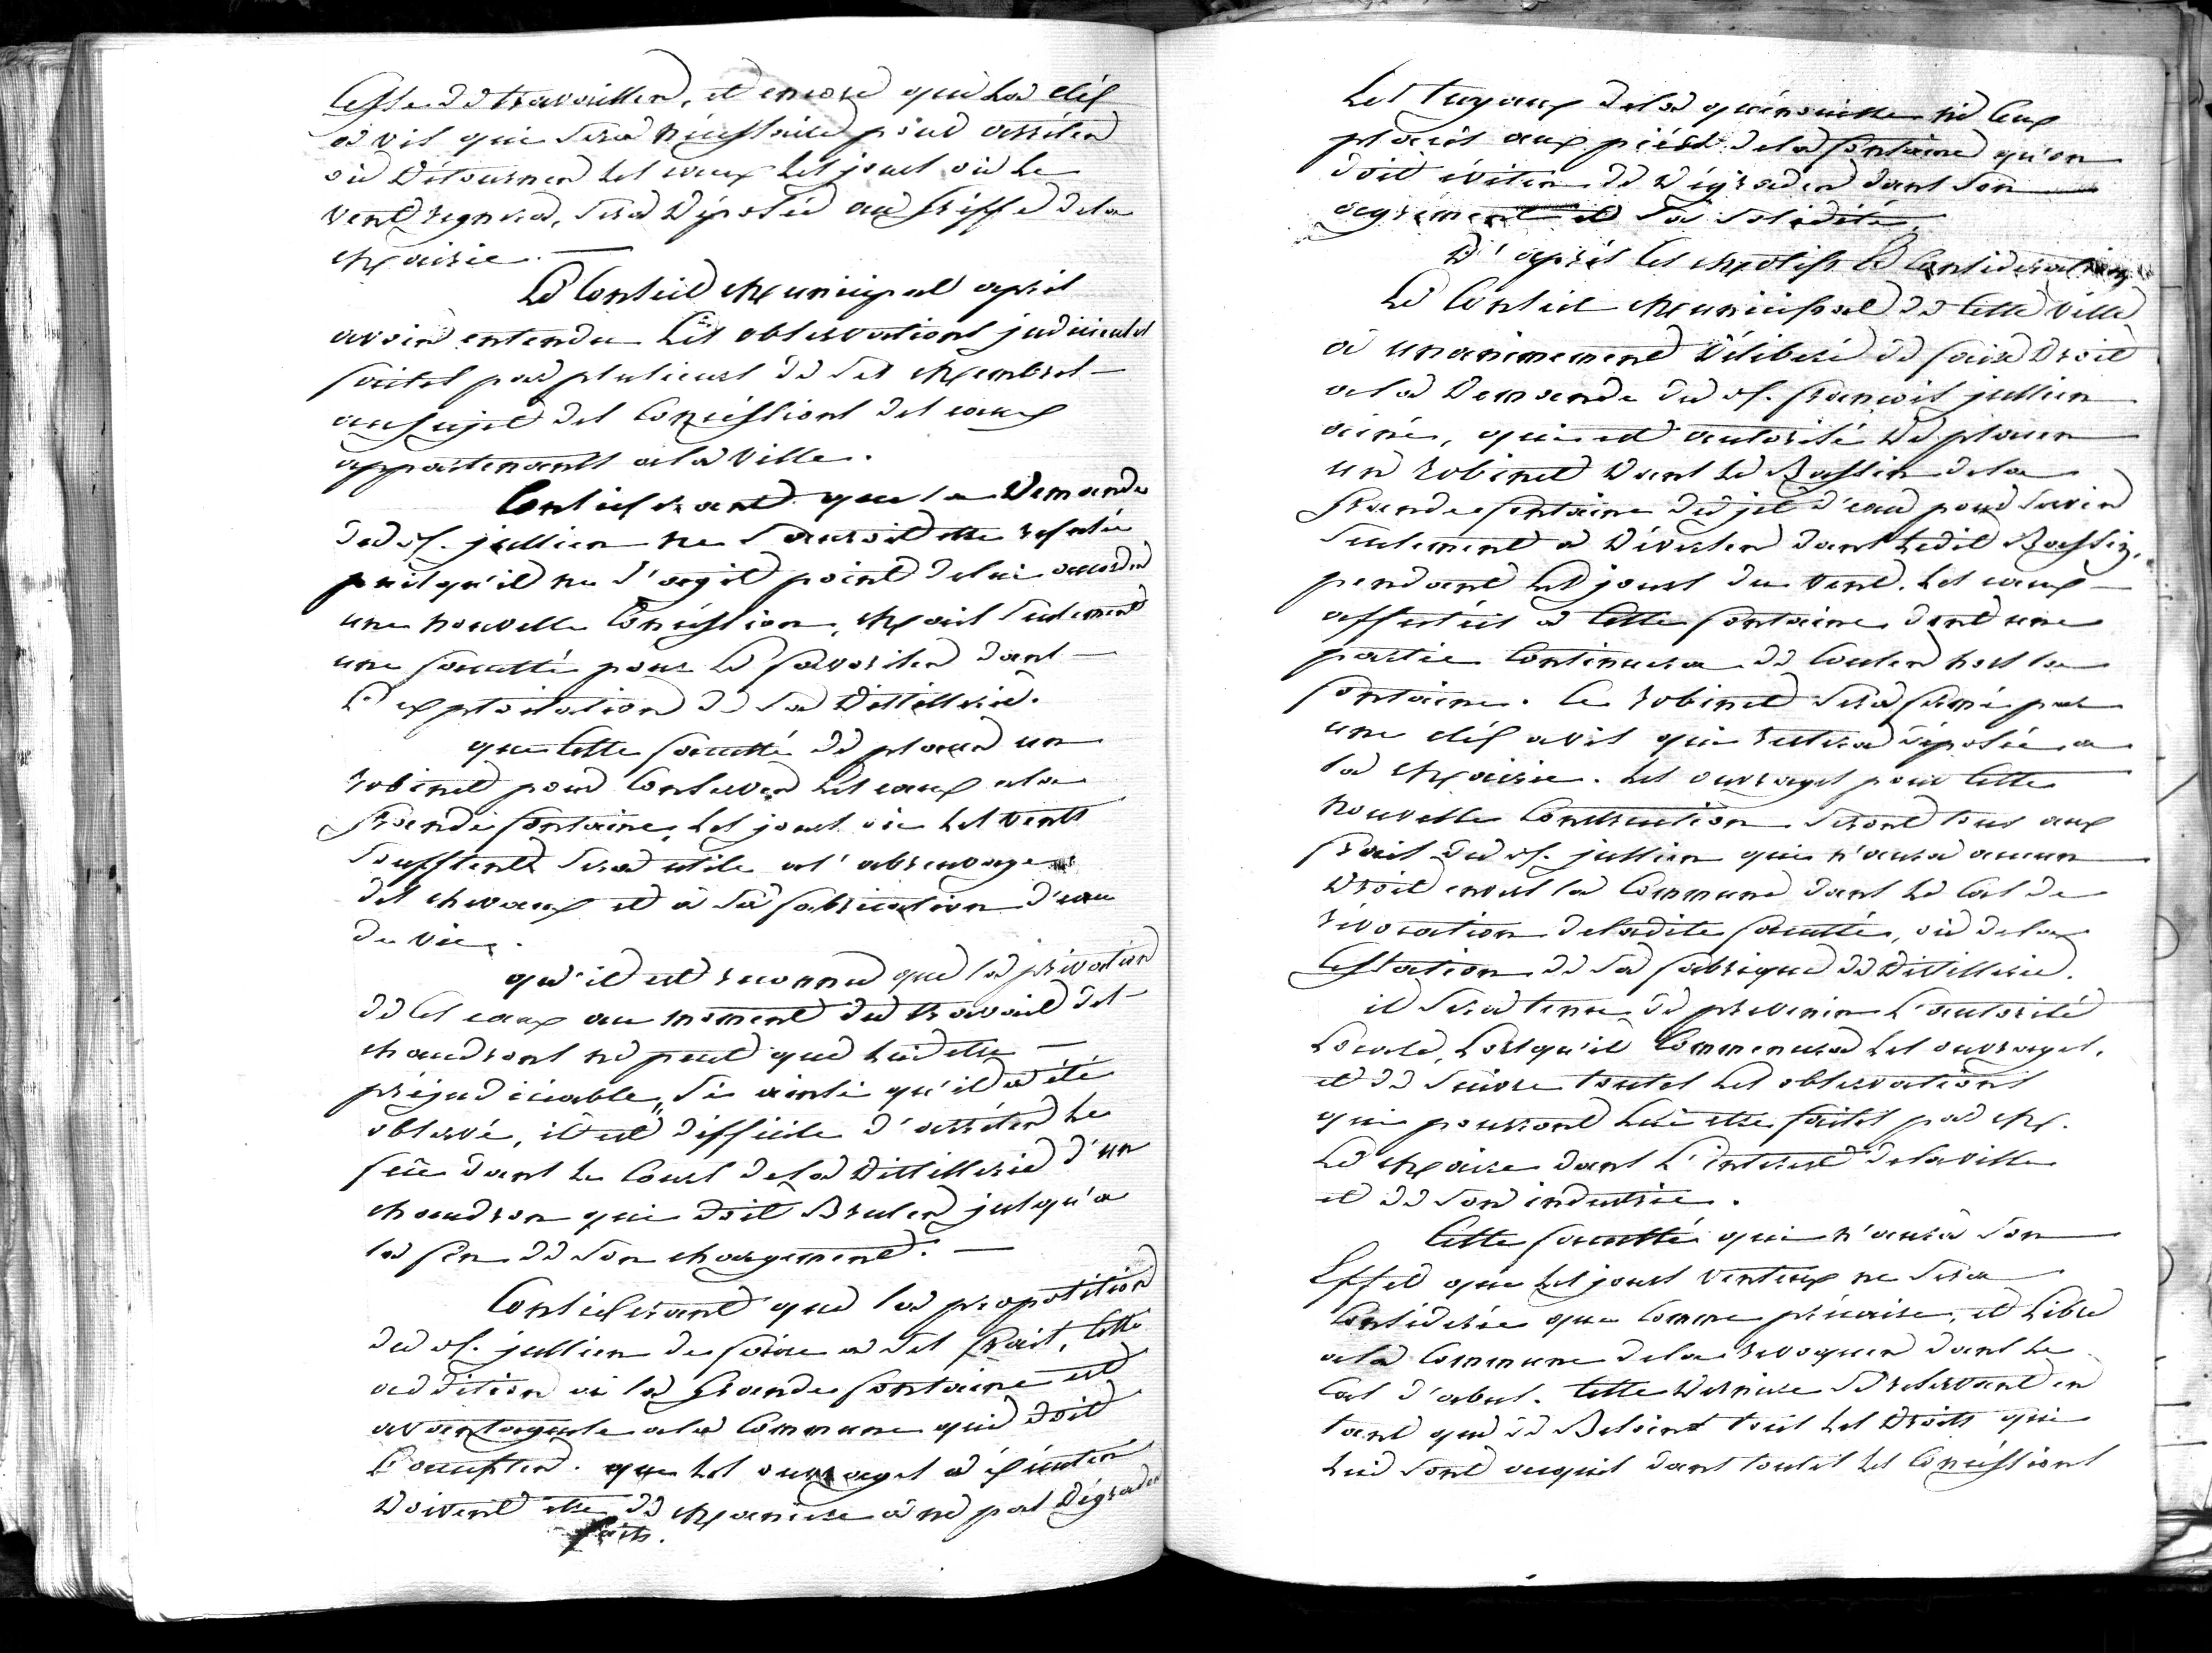 Cesse de travailler, et encore que la clef
a vis qui sera necessaire pour arrêter
où détourner les eaux les jours où le
vent regnera, sera déposée au Greffe dela
Mairie.
Le Conseil Municipal après
avoir entendu les observations judicieuses
faites par plusieurs de ses Membres
au sujet des Concéssions des eaux
appartenants ala ville.
Considerant que la demande
du Sr. jullien ne Sauroit etre refusée
puisqu'il ne s'agit point delui accorder
une nouvelle Concéssion, Mais Seulement
une faculté pour le favoriser dans
l'exploitation de sa Distillerie.
que cette faculté de placer un
robinet pour Conserver les eaux ala
Grande fontaine, les jours où les vents
soufflent sera utile a l'abreuvage
des chevaux et à sa fabrication d'eau
de vie.
qu'il est reconnu que la privation
de ces eaux au moment du travail des
chaudrons ne peut que lui etre
préjudiciable, Si ainsi qu'il a été
observé, il est difficile d'arrêter le
feu dans le Cours dela Distillerie d'un
chaudron qui doit Bruler jusqu'a
la fin de son chargement.
Considerant que la proposition
du Sr. jullien de faire a ses frais, cette
addition a la Grande fontaine est
avantageuse ala Commune qui doit
l'accepter. que les ouvrages a éxécuter
doivent etre de Maniere a ne pas dégrader
faits.
Les tuyaux dela quenouille ni ceux
placés aux pieds dela fontaine qu'on
doit éviter de dégrader dans son
agrément et sa solidité.
D'après ces Motifs et Considerations
Le Conseil Municipal de cette ville
a unanimement déliberé de faire droit
ala demande du Sr. françois jullien
ainé, qui est autorisé de placer
un robinet dans le Bassin dela
Grande fontaine du jet d'eau pour servir
seulement a déverser dans ledit Bassin,
pendant les jours du vent, les eaux
affectées a cette fontaine dont une
partie Continuera de Couler hors la
fontaine. Ce robinet sera fermé par
une clef a vis qui restera déposée a
la Mairie. Les ouvrages pour cette
nouvelle Construction seront tous aux
frais du Sr. jullien qui n'aura aucun
droit envers la Commune dans le cas de
révocation deladite faculté, où dela
Cessation de sa fabrique de Distillerie.
il sera tenu de prevenir l'autorité
Locale, Lorsqu'il Commencera les ouvrages,
et de suivre toutes les observations
qui pourront lui etre faites par M.
le Maire dans l'interest delaville
et de son industrie.
Cette faculté qui n'aura son
Effet que les jours venteux ne sera
Considerée que Comme précaire, et libre
ala Commune dela revoquer dans le
Cas d'abus. Cette derniere se reservant en
tant que de Besoins tous les droits qui
lui sont acquis dans toutes les Concéssions